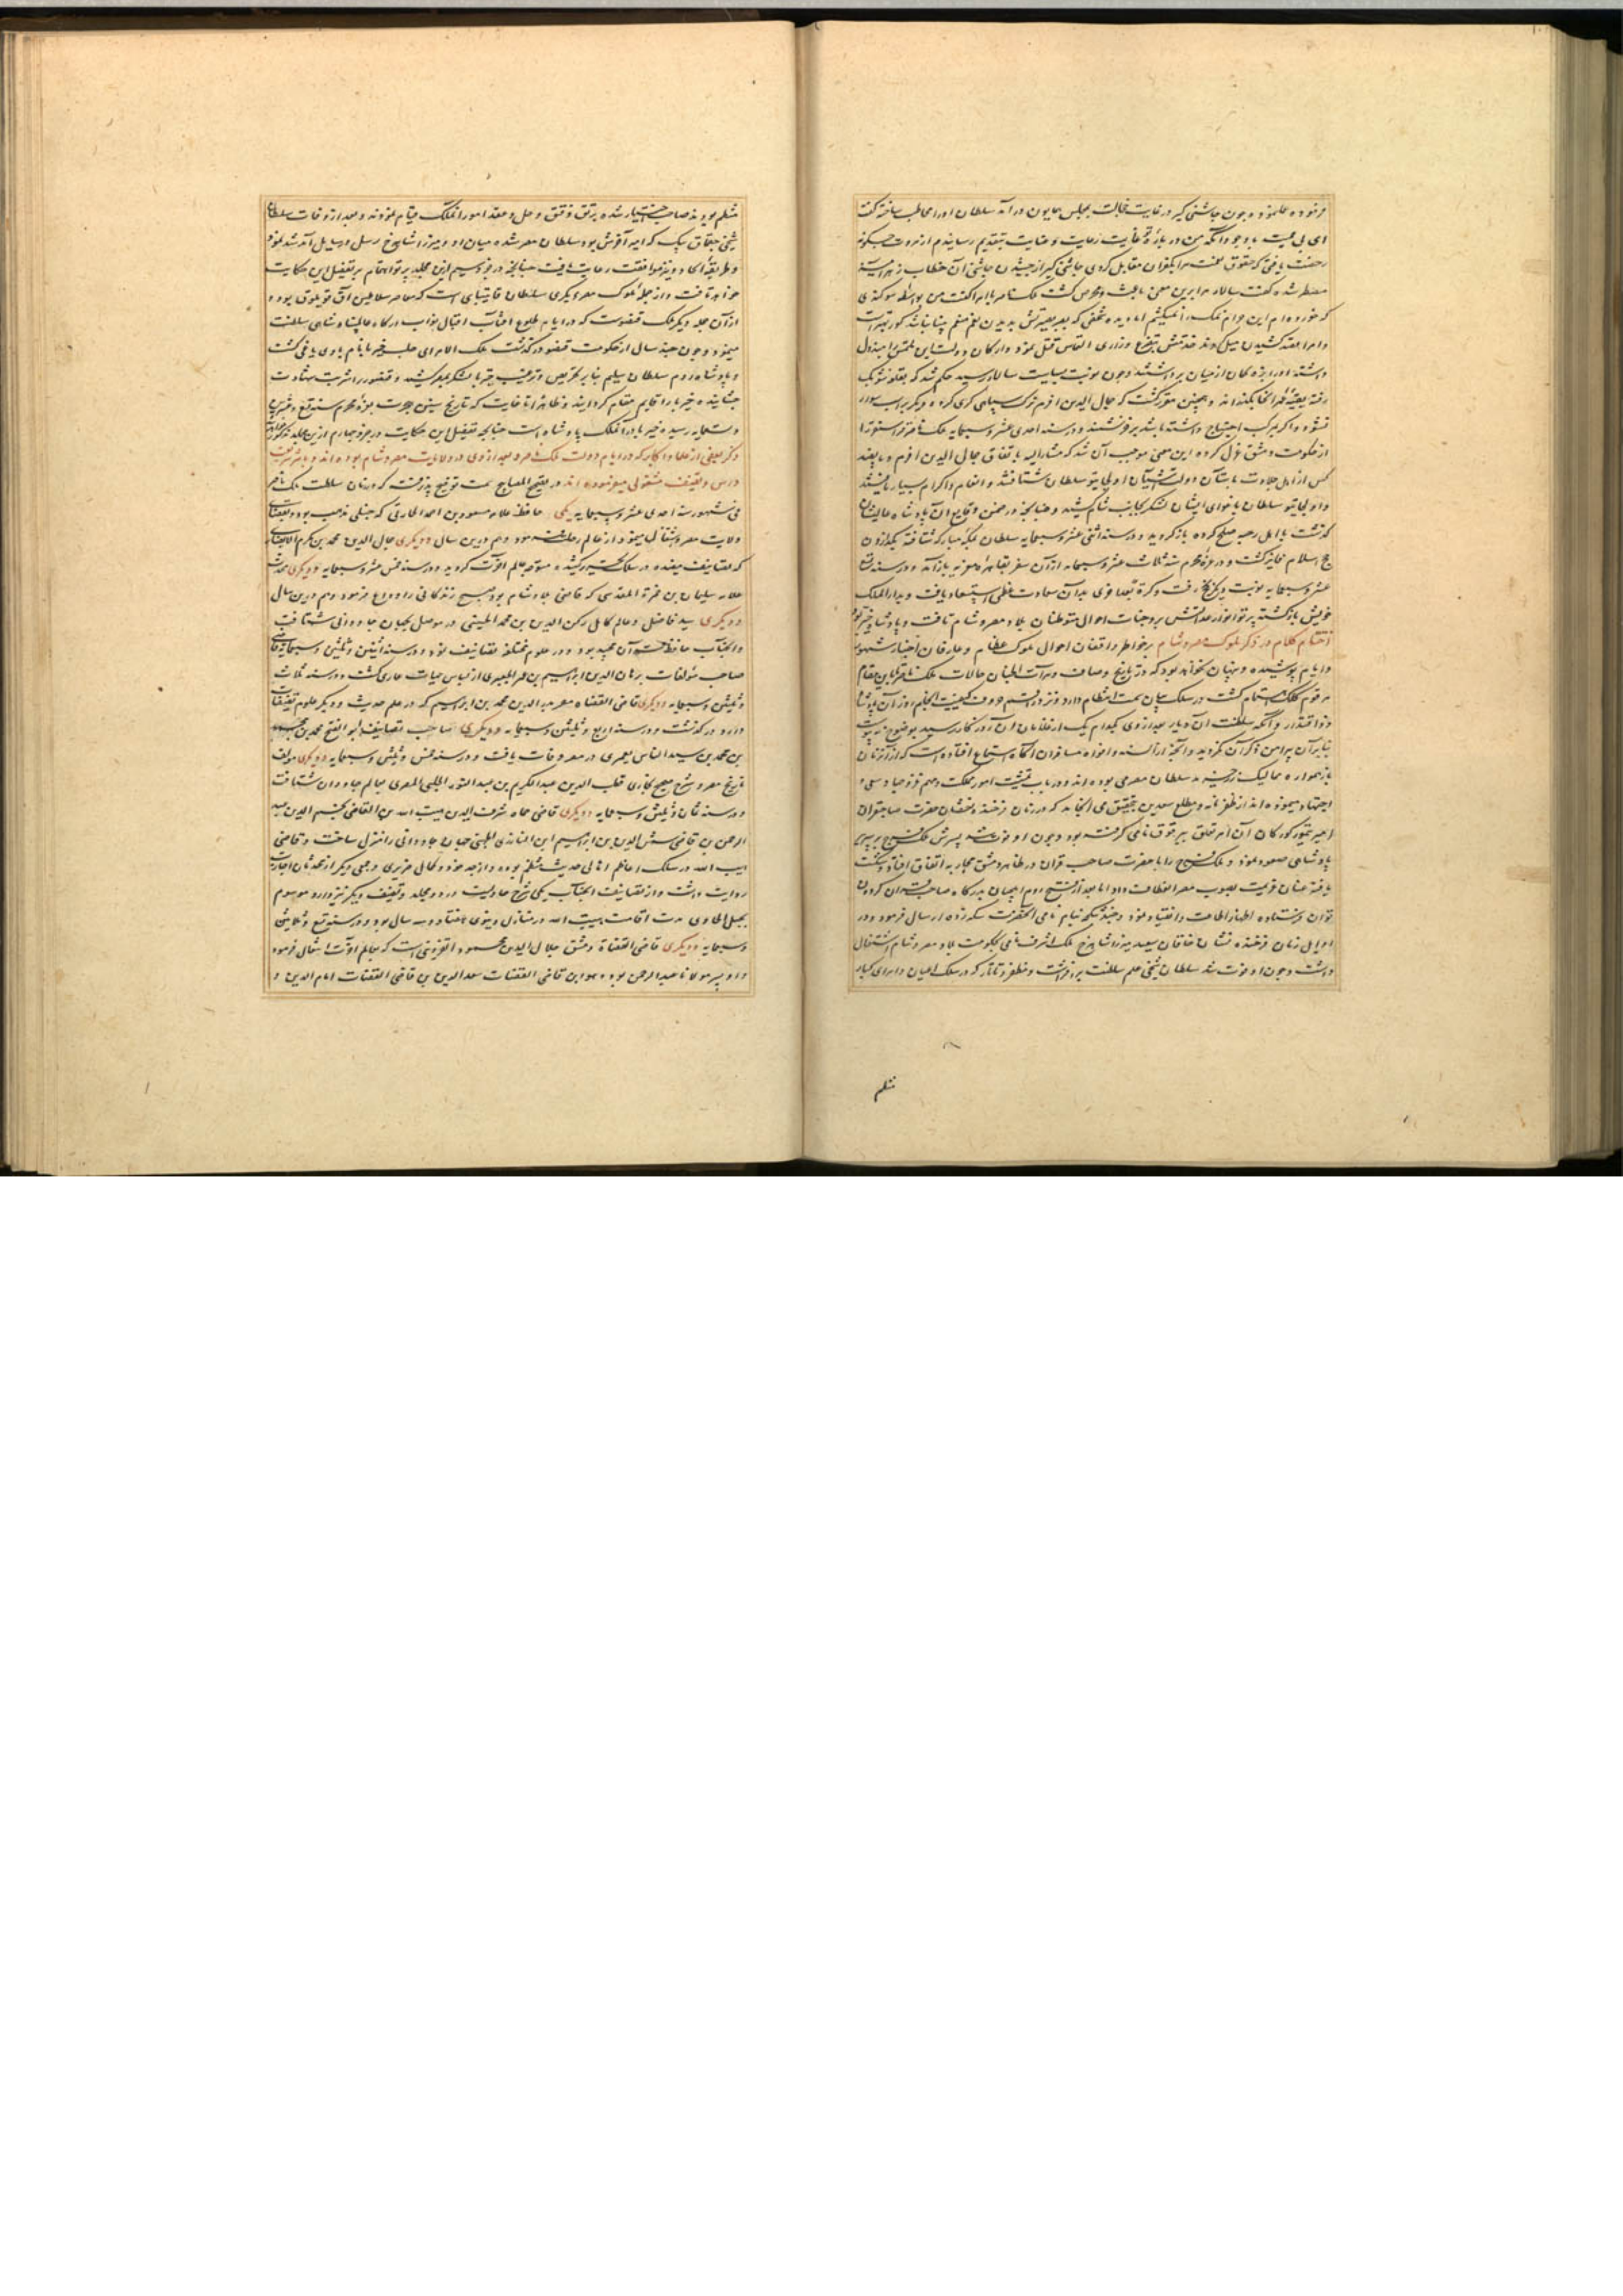 فرموده عمل نمود و چون چاشنی گیر در غایت خجالت بمجلس همایون درآمد سلطان او را مخاطب ساخته گفت
ای بی حمیت با وجود آنکه من در باره تو غایت رعایت و عنایت بتقدیم رسانیدم از مروت چگونه
رخصت یافتی که حقوق نعمت مرا بکفران مقابل کردی چاشنی گیر از چشیدن چاشنی آن خطاب زهر آمیز
مضطر شده گفت سالار مرا برین معنی باعث و محرض گشت ملک ناصر با امرا گفت من بواسطه سوگندی
که خورده ام این حرام نمک را نمیکشم اما دیده شخصی که بعد بصیرتش بدیدن نعم منعم بینا نباشد کور بهتر است
و امرا بقصد کشیدن میل
داشته او را بزه کمان از میان برداشتند و چون نوبت سیاست سالار رسید حکم شد که بقلعه شوبک
رفته بقیه عمر آنجا بگذراند و همچنین مقرر گشت که جمال الدین افرم ترک سپاهی گری کرده دیگر بر اسب سوار
نشود و اگر بمرکب احتیاج داشته باشد بر خر نشیند و در سنه احدی عشر و سبعمایه ملک ناصر قراسنقر را
از حکومت دمشق عزل کرده این معنی موجب آن شد که مشارالیه باتفاق جمال الدین افرم و پانصد
کس از اهل جلادت بآستان دولت آشیان اولجایتو سلطان شتافتند و انعام و اکرام بسیار یافتند
و اولجایتو سلطان باغوای ایشان لشکر بجانب شام کشید و چنانچه در ضمن وقایع آن پادشاه عالیشان
گذشت با اهل رحبه صلح کرده بازگردید و در سنه اثنی عشر و سبعمایه سلطان بمکه مبارکه شتافته بگذاردن
حج اسلام فایز گشت و در غره محرم سنه ثلاث عشر و سبعمایه از آن سفر بقاهره معزیه بازآمد و در سنه تسع
عشر و سبعمایه نوبت دیگر بحج رفت و کرة بعد اخری بدان سعادت عظمی استسعاد یافت و بدار الملک
خویش بازگشته پرتو انوار عدالتش بر وجنات احوال متوطنان بلاد مصر و شام تافت
اختتام کلام در ذکر ملوک مصر و شام بر خواطر واقفان احوال ملوک عظام و عارفان اخبار شهور
و ایام پوشیده و پنهان نخواهد بود که در تاریخ وصاف و مرآت الجنان حالات ملک ناصر تا این مقام
مرقوم کلک اهتمام گشت در سلک بیان سمت انتظام دارد و نزد راقم حروف کیفیت انجام روز آن پادشاه
ذو اقتدار و آنکه سلطنت آن دیار بعد از وی بکدام یک از غلامان آن بزرگوار رسید بوضوح نه پیوست
بنابر آن پیرامن ذکر آن نگردید و آنچه از السنه و افواه مسافران آگاه استماع افتاده است که از آن زمان
باز همواره ممالیک زرخرید سلطان مصر می بوده اند و در باب تمشیت امور مملکت و مهم غزو جهاد سعی و
اجتهاد مینموده اند از ظفرنامه و مطلع سعدین بتحقیق می انجامد که در زمان فرخنده نشان حضرت صاحبقران
امیر تیمور گورکان آن امر تعلق ببرقوق نامی گرفته بود و چون او فوت شد پسرش ملک فرج بر سریر
پادشاهی صعود نمود و ملک فرج را با حضرت صاحب قران در ظاهر دمشق محاربه اتفاق افتاد و شکست
یافته عنان عزیمت بصوب مصر انعطاف داد اما بعد از فتح روم ایلچیان بدرگاه صاحب قران گردون
توان فرستاده اظهار اطاعت و انقیاد نمود و چند تنکچه بنام نامی آنحضرت سکه زده ارسال فرمود و در
اوایل زمان فرخنده نشان خاقان سعید میرزا شاهرخ ملک اشرف نامی بحکومت بلاد مصر و شام اشتغال
داشت و چون او فوت شد سلطان شیخی علم سلطنت برافراشت و مظفر و تاتار که در سلک اعیان و امرای کبار
منظم
منظم بودند صاحب اختیار شده برتق و فتق و حل و عقد امور آن ملک قیام نمودند و بعد از وفات سلطان
شیخی جقماق بیک که امیر آخورش بود سلطان مصر شده میان او و میرزا شاهرخ رسل و رسایل آمد شد نمود
و طریقه اتحاد و نیز موافقت رعایت یافت چنانچه در جزو سیم ازین مجلد پرتو اهتمام بر تفصیل این حکایت
خواهد تافت و از جمله ملوک مصر دیگری سلطان قایتبای است که معاصر سلاطین آق قویلوق بود و
از آن جمله دیگر ملک قنصوست که در ایام طلوع آفتاب اقبال نواب درگاه عالمپناه شاهی سلطنت
مینمود و چون چند سال از حکومت قنصو درگذشت ملک الامرای حلب خیر بای نام با وی یاغی گشت
و پادشاه روم سلطان سلیم بنابر تحریص و ترغیب خیر بای لشکر بمصر کشید و قنصو را شربت شهادت
چشانیده خیر بای را قایم مقام گردانید و ظاهرا تا غایت که تاریخ سنین هجرت بغره محرم سنه تسع و عشرین
و تسعمایه رسیده خیر بای در آن ملک پادشاه است چنانچه تفصیل این حکایت در جزو چهارم ازین مجلد مذکور
ذکر بعضی از علما و اکابر که در ایام دولت ملک ناصر و بعد از وی در ولایت مصر و شام بوده اند و بامر تدریس
درس و تصنیف مشغولی مینموده اند در تصحیح المصابیح سمت توضیح پذیرفت که در زمان سلطنت ملک ناصر
فی شهور سنه احدی عشر و سبعمایه یکی حافظ علامه مسعود بن احمد الحارثی که حنبلی مذهب بود و بقضای
ولایت مصر اشتغال مینمود از عالم رحلت نمود و هم درین سال و دیگری جمال الدین محمد بن مکرم الانصاری
که تصانیف مفیده در سلک تحریر کشیده متوجه عالم آخرت گردید و در سنه خمس عشر و سبعمایه و دیگری محدث
علامه سلیمان بن حمزة المقدسی که قاضی بلاد شام بود مسیح زندگانی را وداع فرمود و هم درین سال
و دیگری سید فاضل و عالم کامل رکن الدین بن محمد الحسینی در موصل بجهان جاودانی شتافت
و آنجناب حافظ قرآن مجید بود و در علوم مختلفه تصانیف نمود و در سنه اثنین و ثلثین و سبعمایه
صاحب مؤلفات برهان الدین ابراهیم بن عمر الجعبری از لباس حیات عاری گشت و در سنه ثلاث
و ثلثین و سبعمایه و دیگری قاضی القضاة مصر بدر الدین محمد بن ابراهیم که در علم حدیث و دیگر علوم تصنیفات
دارد درگذشت و در سنه اربع و ثلثین و سبعمایه و دیگری صاحب تصانیف ابو الفتح محمد بن محمد
بن محمد بن سید الناس الیعمری در مصر وفات یافت و در سنه خمس و ثلثین و سبعمایه و دیگری مولف
تاریخ مصر و شرح صحیح بخاری قطب الدین عبد الکریم بن عبد النور الحلبی المصری بعالم جاودان شتافت
و در سنه ثمان و ثلثین و سبعمایه و دیگری قاضی حماه شرف الدین هیبت الله بن القاضی نجم الدین عبد
الرحمن بن قاضی شمس الدین بن ابراهیم ابن البارزی الجهنی جهان جاودانی را منزل ساخت و قاضی
هیبت الله در سلک اعاظم ائمه حدیث منتظم بوده و از جد خود و کمالی ضریری و جمعی دیگر از محدثان اجازت
روایت داشت و از تصانیف آنجناب یکی شرح حاویست در دو مجلد و تصنیف دیگر نیز دارد موسوم
بحل الحاوی مدت اقامت هیبت الله در منازل دنیوی هفتاد و سه سال بود و در سنه تسع و ثلثین
و سبعمایه و دیگری قاضی القضاة دمشق جلال الدین محمود القزوینی است که بعالم آخرت انتقال فرمود
و او پسر مولانا عبد الرحمن بود و هو ابن قاضی القضات سعد الدین بن قاضی القضات امام الدین و